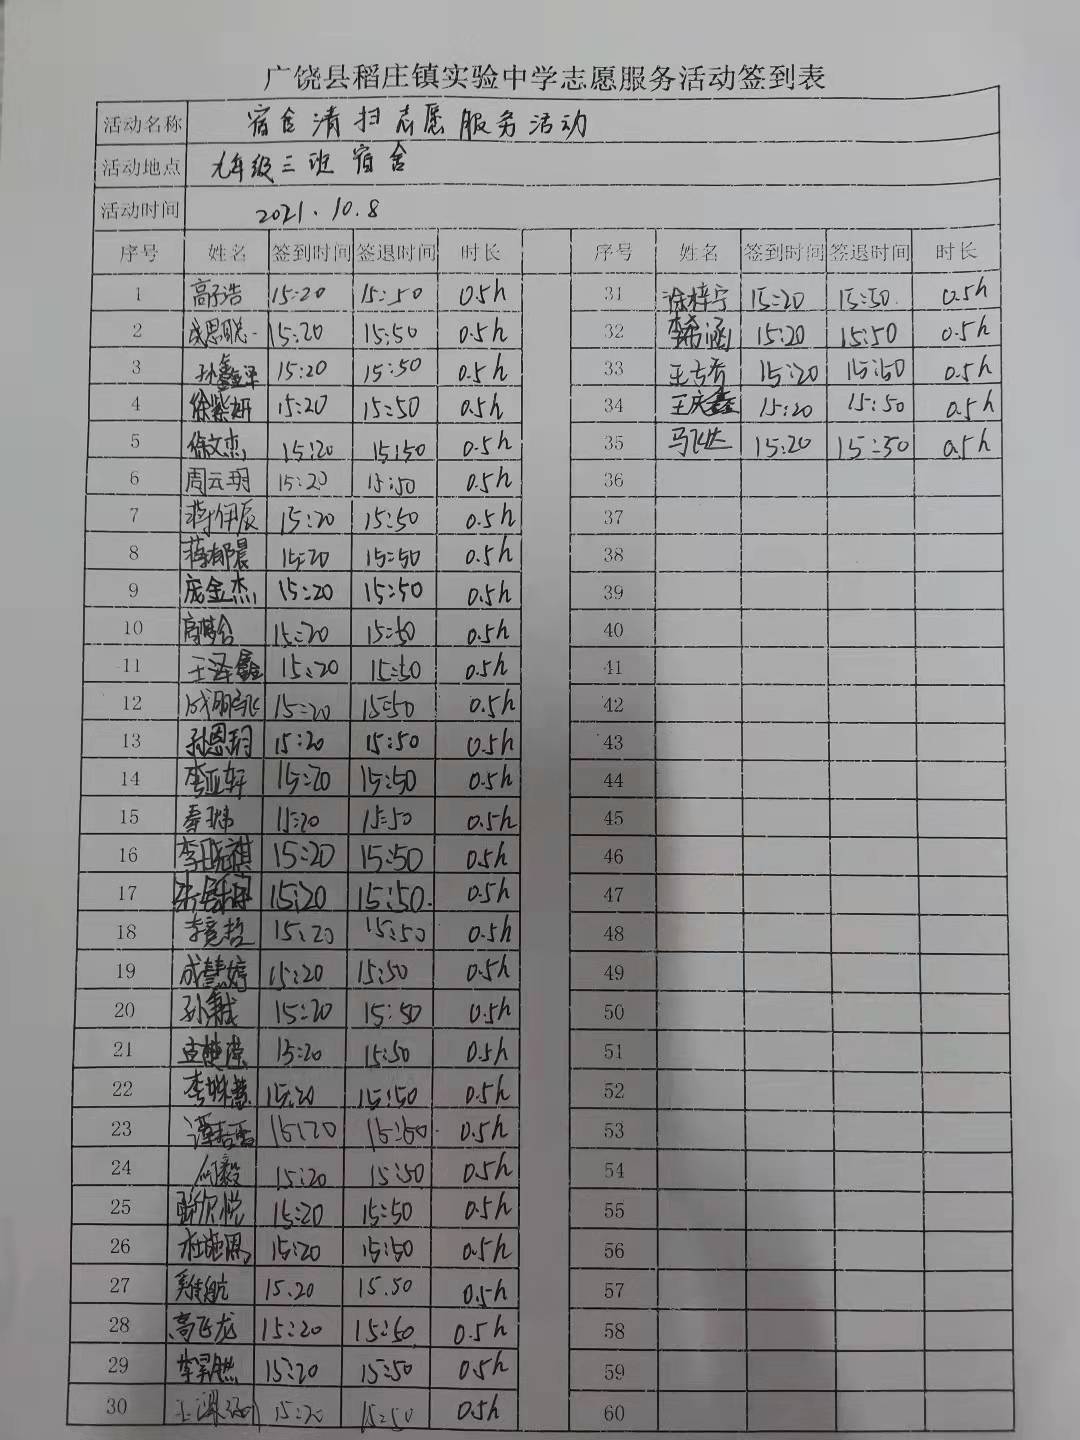 广饶县稻庄镇实验中学志愿服务活动签到表
活动名称 宿舍清扫志愿服务活动
活动地点 九年级三班宿舍
活动时间 2021.10.8
序号 姓名 签到时间 签退时间 时长 序号 姓名 签到时间 签退时间 时长
1 高子浩 15:20 15:50 0.5h 31 徐梓宁 15:20 15:50. 0.5h
2 成思聪 15:20 15:50 0.5h 32 李希涵 15:20 15:50 0.5h
3 孙鑫泽 15:20 15:50 0.5h 33 15:20 15:50 0.5h
4 徐紫妍 15:20 15:50 0.5h 34 王庆鑫 15:20 15:50 0.5h
5 徐文杰 15:20 15:50 0.5h 35 马飞达 15:20 15:50 0.5h
6 周云玥 15:20 15:50 0.5h 36
7 蒋伊辰 15:20 15:50 0.5h 37
8 蒋郁晨 15:20 15:50 0.5h 38
9 庞金杰 15:20 15:50 0.5h 39
10 15:20 15:50 0.5h 40
11 王泽鑫 15:20 15:50 0.5h 41
12 成朋飞 15:20 15:50 0.5h 42
13 孙恩玥 15:20 15:50 0.5h 43
14 李亚轩 15:20 15:50 0.5h 44
15 秦玮 15:20 15:50 0.5h 45
16 李晓祺 15:20 15:50 0.5h 46
17 15:20 15:50. 0.5h 47
18 李竞哲 15:20 15:50 0.5h 48
19 成慧婷 15:20 15:50 0.5h 49
20 15:20 15:50 0.5h 50
21 15:20 15:50 0.5h 51
22 李姝慧 15:20 15:50 0.5h 52
23 15:20 15:50. 0.5h 53
24 何毅 15:20 15:50 0.5h 54
25 欣悦 15:20 15:50 0.5h 55
26 15:20 15:50 0.5h 56
27 15.20 15.50 0.5h 57
28 高飞龙 15:20 15:50 0.5h 58
29 李昊燃 15:20 15:50 0.5h 59
30 15:20 15:50 0.5h 60